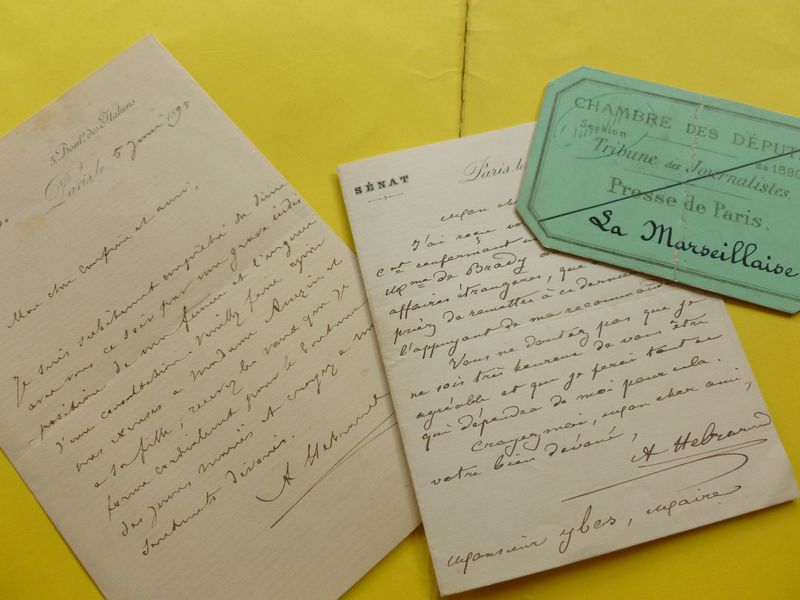 5, Boul.d des Italiens
Paris, le 5 juin 1895
Mon cher confrère et ami,
Je suis subitement empêché de dîner
avec vous ce soir par une grave indis
-position de ma femme et l'urgence
d'une consultation. Veuillez faire agréer
mes excuses à Madame Anezin et
à sa fille; recevez les vœux que je
forme cordialement pour le bonheur
des jeunes mariés et croyez à mes
sentiments dévoués.
A Hebrard
SÉNAT
Paris, le
Mon
J'ai reçu
c.t renfermant
Mme de Brady
affaires étrangères, que
priez de remettre à ce dernier
l'appuyant de ma recommand
Vous ne doutez pas que je
ne sois très heureux de vous être
agréable et que je ferai tout ce
qui dépendra de moi pour cela.
Croyez moi, mon cher ami,
votre bien dévoué,
A Hebrard
Monsieur Ybes, Maire
CHAMBRE DES DÉPUT
Session de 1890
Tribune des Journalistes
Presse de Paris.
La Marseillaise